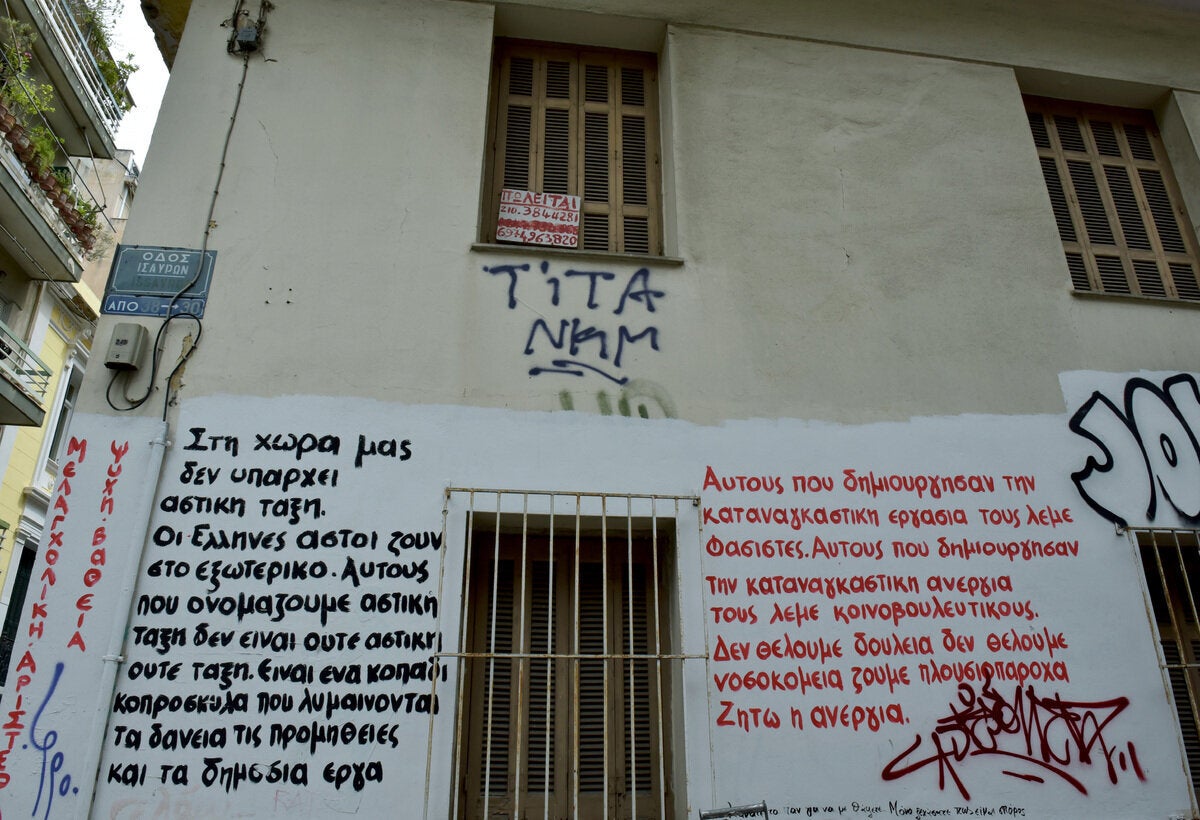 ΠΩΛΕΙΤΑΙ
210.3844281
6974963820
ΟΔΟΣ
ΙΣΑΥΡΩΝ
ΑΠΟ 38→30
ΤίΤΑ
Στη χωρα μας
δεν υπαρχει
αστικη ταξη.
Οι Ελληνες αστοι ζουν
στο εξωτερικο. Αυτους
που ονομαζουμε αστικη
ταξη δεν ειναι ουτε αστικη
ουτε ταξη. Ειναι ενα κοπαδι
κοπροσκυλα που λυμαινονται
τα δανεια τις προμηθειες
και τα δημοσια εργα
Ψυχη. βαθεια
Μελαγχολικη. Αριστερ
Αυτους που δημιουργησαν την
καταναγκαστικη εργασια τους λεμε
Φασιστες. Αυτους που δημιουργησαν
την καταναγκαστικη ανεργια
τους λεμε κοινοβουλευτικους.
Δεν θελουμε δουλεια δεν θελουμε
νοσοκομεια ζουμε πλουσιοπαροχα
Ζητω η ανεργια.